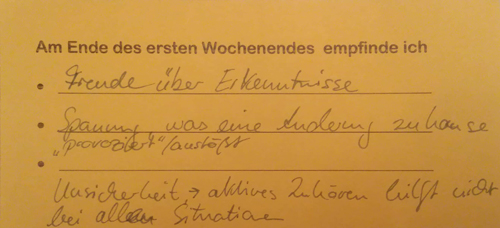 Am Ende des ersten Wochenendes empfinde ich
• Freude über Erkenntnisse
• Spanung was eine Änderung zuhause
"provoziert"/anstößt
•
Unsicherheit → aktives Zuhören hilft nicht
bei allen Situationen